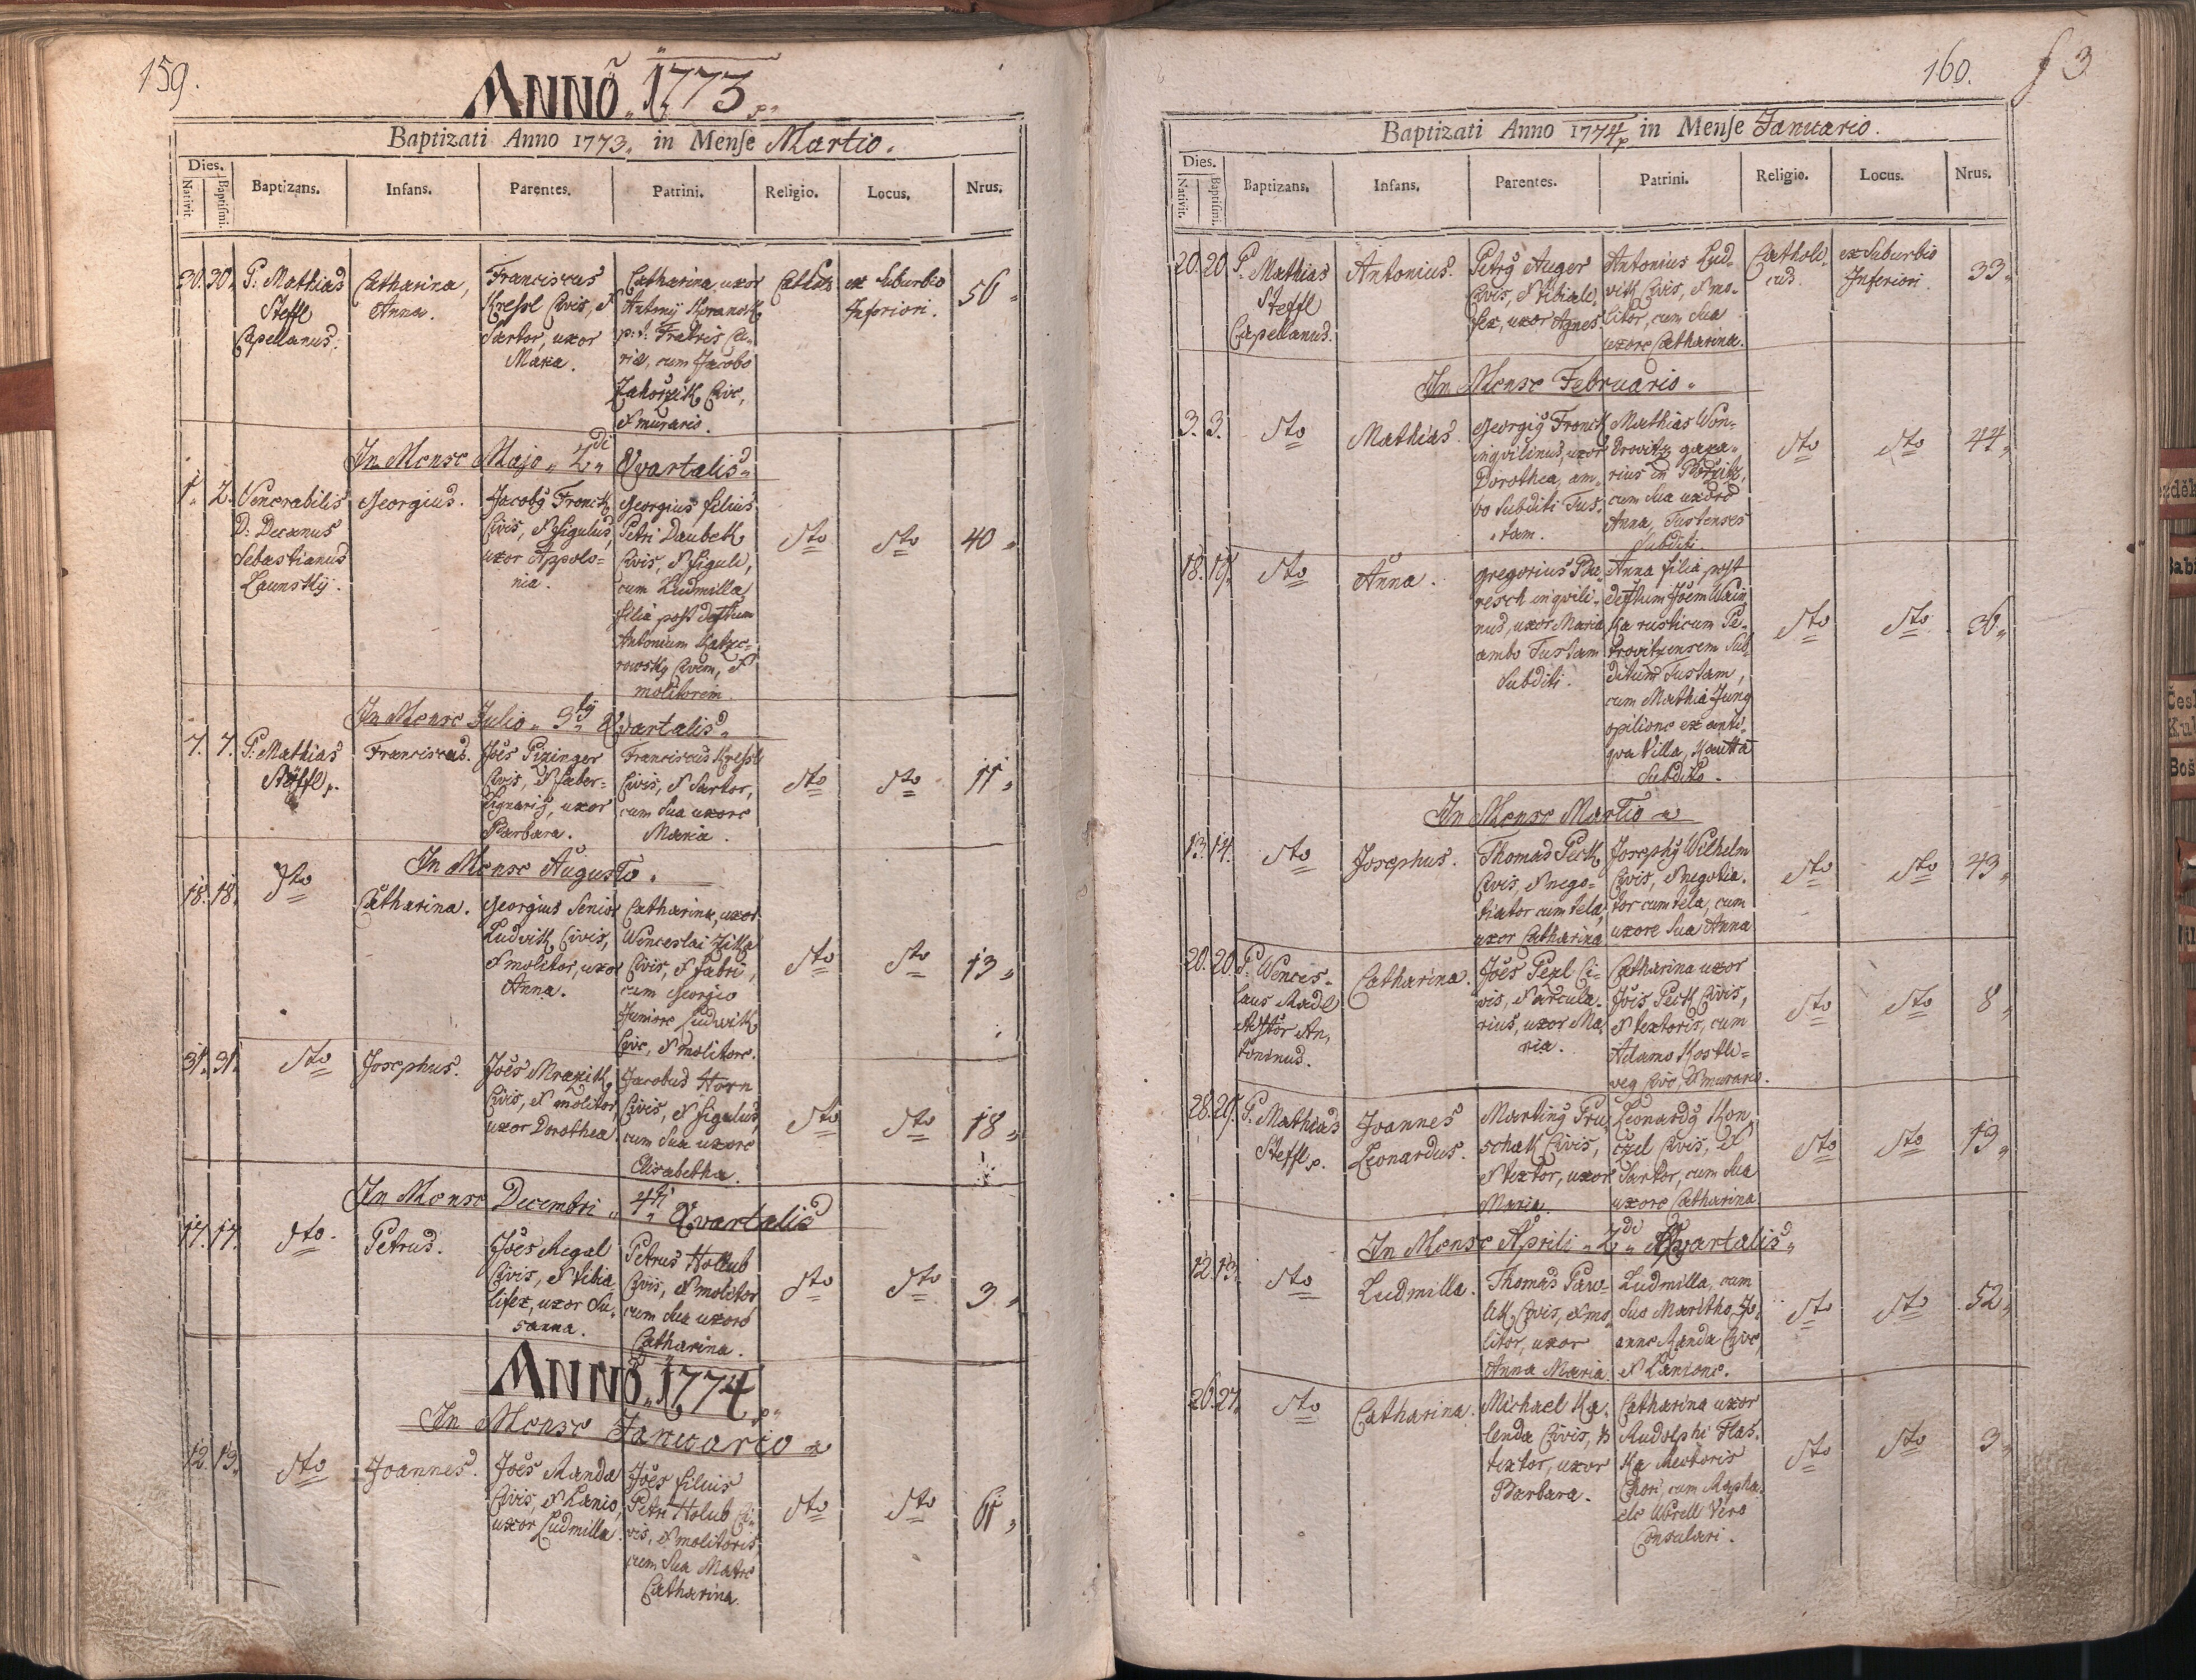 159.
ANNO 1773
Baptizati Anno 1773. in Menſe Martio.
Dies.
Nativit.
Baptiſmi.
Baptizans.
Infans.
Parentes.
Patrini.
Religio.
Locus.
Nrus.
30. 30.
P. Mathias
Steffl
Capellanus.
Catharina,
Anna.
Franciscus
Kressl Civis, et
Sartor, uxor
Maria.
Catharina, uxor
Antonij
p: t: Fratris
cum Jacobo
Civ,
et muraris.
ex Suburbio
Inferiori.
56
In Mense Majo 2di Qvartalis
1. 2.
Venerabilis
D: Decanus
Sebastianus
Launskÿ.
Georgius.
Jacobq Fronek
Civis, et figulus,
uxor Appolo=
nia.
Georgius filius
Petri Daubek
Civis, et figuli,
cum Ludmilla
filia post
Antonium
Civem, et
molitorem.
dto
dto
40
In Mense Julio 3tij Qvartalis
7. 7.
P. Mathias
Steffl p.
Franciscus.
Joês Pizinger
Civis, et faber=
lignariq, uxor
Barbara.
Franciscus Kressl
Civis, et Sartor,
cum sua uxore
Maria.
dto
dto
11
In Mense Augusto.
18. 18.
dto
Catharina.
Georgius Senior
Ludvik Civis,
et molitor, uxor
Anna.
Catharina, uxor
Wenceslai Zitka
Civis, et fabri,
cum Georgio
Juniore Ludwik
Cive, et molitore.
dto
dto
13
31. 31.
dto
Josephus.
Joês Mrazik
Civis, et molitor,
uxor Dorothea.
Jacobus Horn
Civis, et figulus,
cum sua uxore
Elisabetha.
dto
dto
18
In Mense Decembri 4ti Qvartalis
17. 17.
dto
Petrus.
Joês Regal
Civis, et tibia
lifex, uxor Su=
sanna.
Petrus Hollub
Civis, et molitor
cum sua uxore
Catharina.
dto
dto
3
ANNO 1774
In Mense Januario
12. 13.
dto
Joannes.
Joês Randa
Civis, et Lanio,
uxor Ludmilla.
Joês filius
Petri Holub Ci=
vis, et molitoris
cum sua Matre
Catharina.
dto
dto
61
160.
3
Baptizati Anno 1774 in Menſe Januario.
Dies.
Nativit.
Baptiſmi.
Baptizans.
Infans.
Parentes.
Patrini.
Religio.
Locus.
Nrus.
20. 20
P. Mathias
Steffl
Capellanus.
Antonius.
Petrq Auger
Civis, et tibiali
fex, uxor Agnes
Antonius Lud=
vik Civis, et mo=
litor, cum sua
uxore Catharina.
Catholi
cus.
ex Suburbio
Inferiori.
33
In Mense Februario
3. 3.
dto
Mathias.
Georgiq Fronek
inqvilinus, uxor
Dorothea, am=
bo Subditi Tus=
tam.
Mathias Won=
drovitz
rius in
cum sua uxore
Anna, Tustenses
Subditi.
dto
dto
44
18. 19.
dto
Anna.
Gregorius
inqvili=
nus, uxor Maria
ambo Tustam
Subditi.
Anna filia post
Joêm
rusticum Pe=
trovitzensem Sub=
ditum Tustam,
cum Mathia Jung
opilione ex anti=
qva Villa, Kautta
Subdito.
dto
dto
36
In Mense Martio
13. 14.
dto
Josephus.
Thomas Peck
Civis, et nego=
tiator cum tela,
uxor Catharina
Josephq Wilhelm
Civis, et negotia=
tor cum tela, cum
uxore sua Anna
dto
dto
43
20. 20.
P. Wences=
laus Radl
An=
toninus.
Catharina.
Joês Pexl Ci=
vis, et arcula=
rius, uxor Ma=
ria.
Catharina uxor
Jois Peck Civis,
et textoris, cum
Adamo Kostli=
veg Cive, et murario.
dto
dto
8
28. 29.
P. Mathias
Steffl p.
Joannes
Leonardus.
Martinq Pru
schak Civis,
et textor, uxor
Maria.
Leonardq Kon
czel Civis, et
Sartor, cum sua
uxore Catharina
dto
dto
19
In Mense Aprili 2di Qvartalis
12. 13.
dto
Ludmilla.
Thomas Paw=
lik Civis, et mo=
litor, uxor
Anna Maria.
Ludmilla, cum
suo Maritho Jo=
anne Randa Cive,
et Lanione.
dto
dto
52
26. 27.
dto
Catharina.
Michael Ka=
lenda Civis, et
textor, uxor
Barbara.
Catharina uxor
Rudolphi Flas=
ka Rectoris
Chori, cum Rapha
ele Worell Viro
Consulari.
dto
dto
3